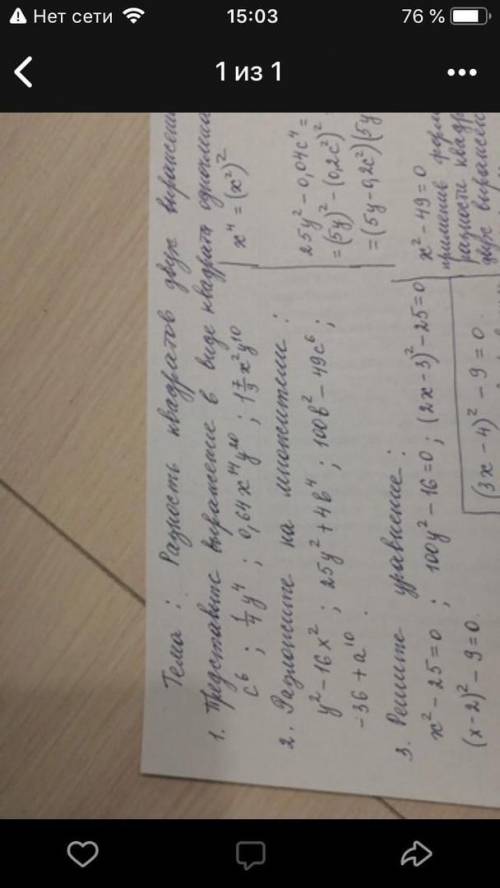 Нет сети 15:03 76 %
1 из 1
Тема: Разность квадратов двух
1. Представьте выражение в виде квадрата
c⁶ ; 1/4 y⁴ ; 0,64x¹⁴y²⁰ ; 1 7/9 x²y¹⁰
x⁴ = (x²)²
2. Разложите на множители:
y² - 16x² ; 25y² + 4b⁴ ; 100b² - 49c⁶ ;
- 36 + a¹⁰ .
25y² - 0,04c⁴ =
= (5y)² - (0,2c²)²
= (5y - 0,2c²)(5y
3. Решите уравнение:
x² - 25 = 0 ; 100y² - 16 = 0 ; (2x - 3)² - 25 = 0
(x - 2)² - 9 = 0
(3x - 4)² - 9 = 0
x² - 49 = 0
применив
разности
двух